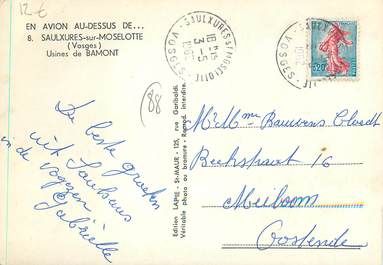 12€
EN AVION AU-DESSUS DE...
8. SAULXURES-sur-MOSELOTTE
(Vosges)
Usines de BAMONT
SAULXURES S/MOSELOTTE
18H15
3-5
1962
VOSGES
0,20
88
De beste groeten
uit Saulxures
in de Vogezen
Gabrielle
Edition LAPIE - St-MAUR - 125, rue Garibaldi.
Véritable photo au bromure - Reprod. interdite.
Mr & Mme Bauwens
16
Meiboom
Oostende